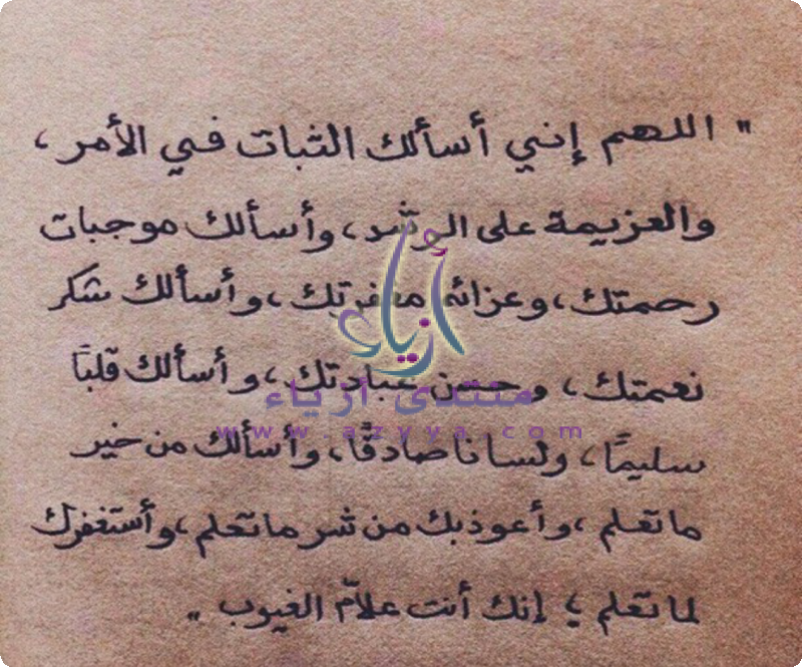 " اللهم إني أسألك الثبات في الأمر ،
والعزيمة على الرشد ، وأسألك موجبات
رحمتك ، وعزائم مغفرتك ، وأسألك شكر
نعمتك ، وحسن عبادتك ، وأسألك قلبًا
سليمًا ، ولسانا صادقًا ، وأسألك من خير
ما تعلم ، وأعوذ بك من شر ما تعلم ، وأستغفرك
لما تعلم ؛ إنك أنت علاّم الغيوب "
أزياء
منتدى ازياء
www.azyya.com